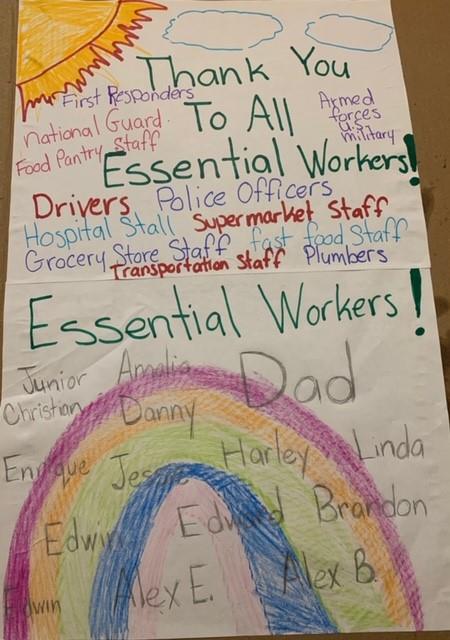 Thank You
First Responders
To All
Armed
forces
U.S.
military
National Guard
Food Pantry Staff
Essential Workers!
Drivers Police Officers
Hospital Stall Supermarket Staff
Grocery Store Staff fast food Staff
Transportation Staff Plumbers
Essential Workers!
Junior Amalia Dad
Christian Danny
Enrique Jessie Harley Linda
Edwin Edward Brandon
Edwin Alex E. Alex B.